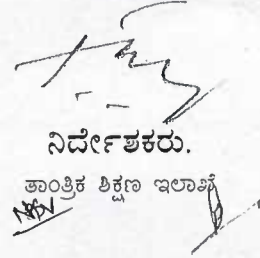 ನಿರ್ದೇಶಕರು.
ತಾಂತ್ರಿಕ ಶಿಕ್ಷಣ ಇಲಾಖೆ